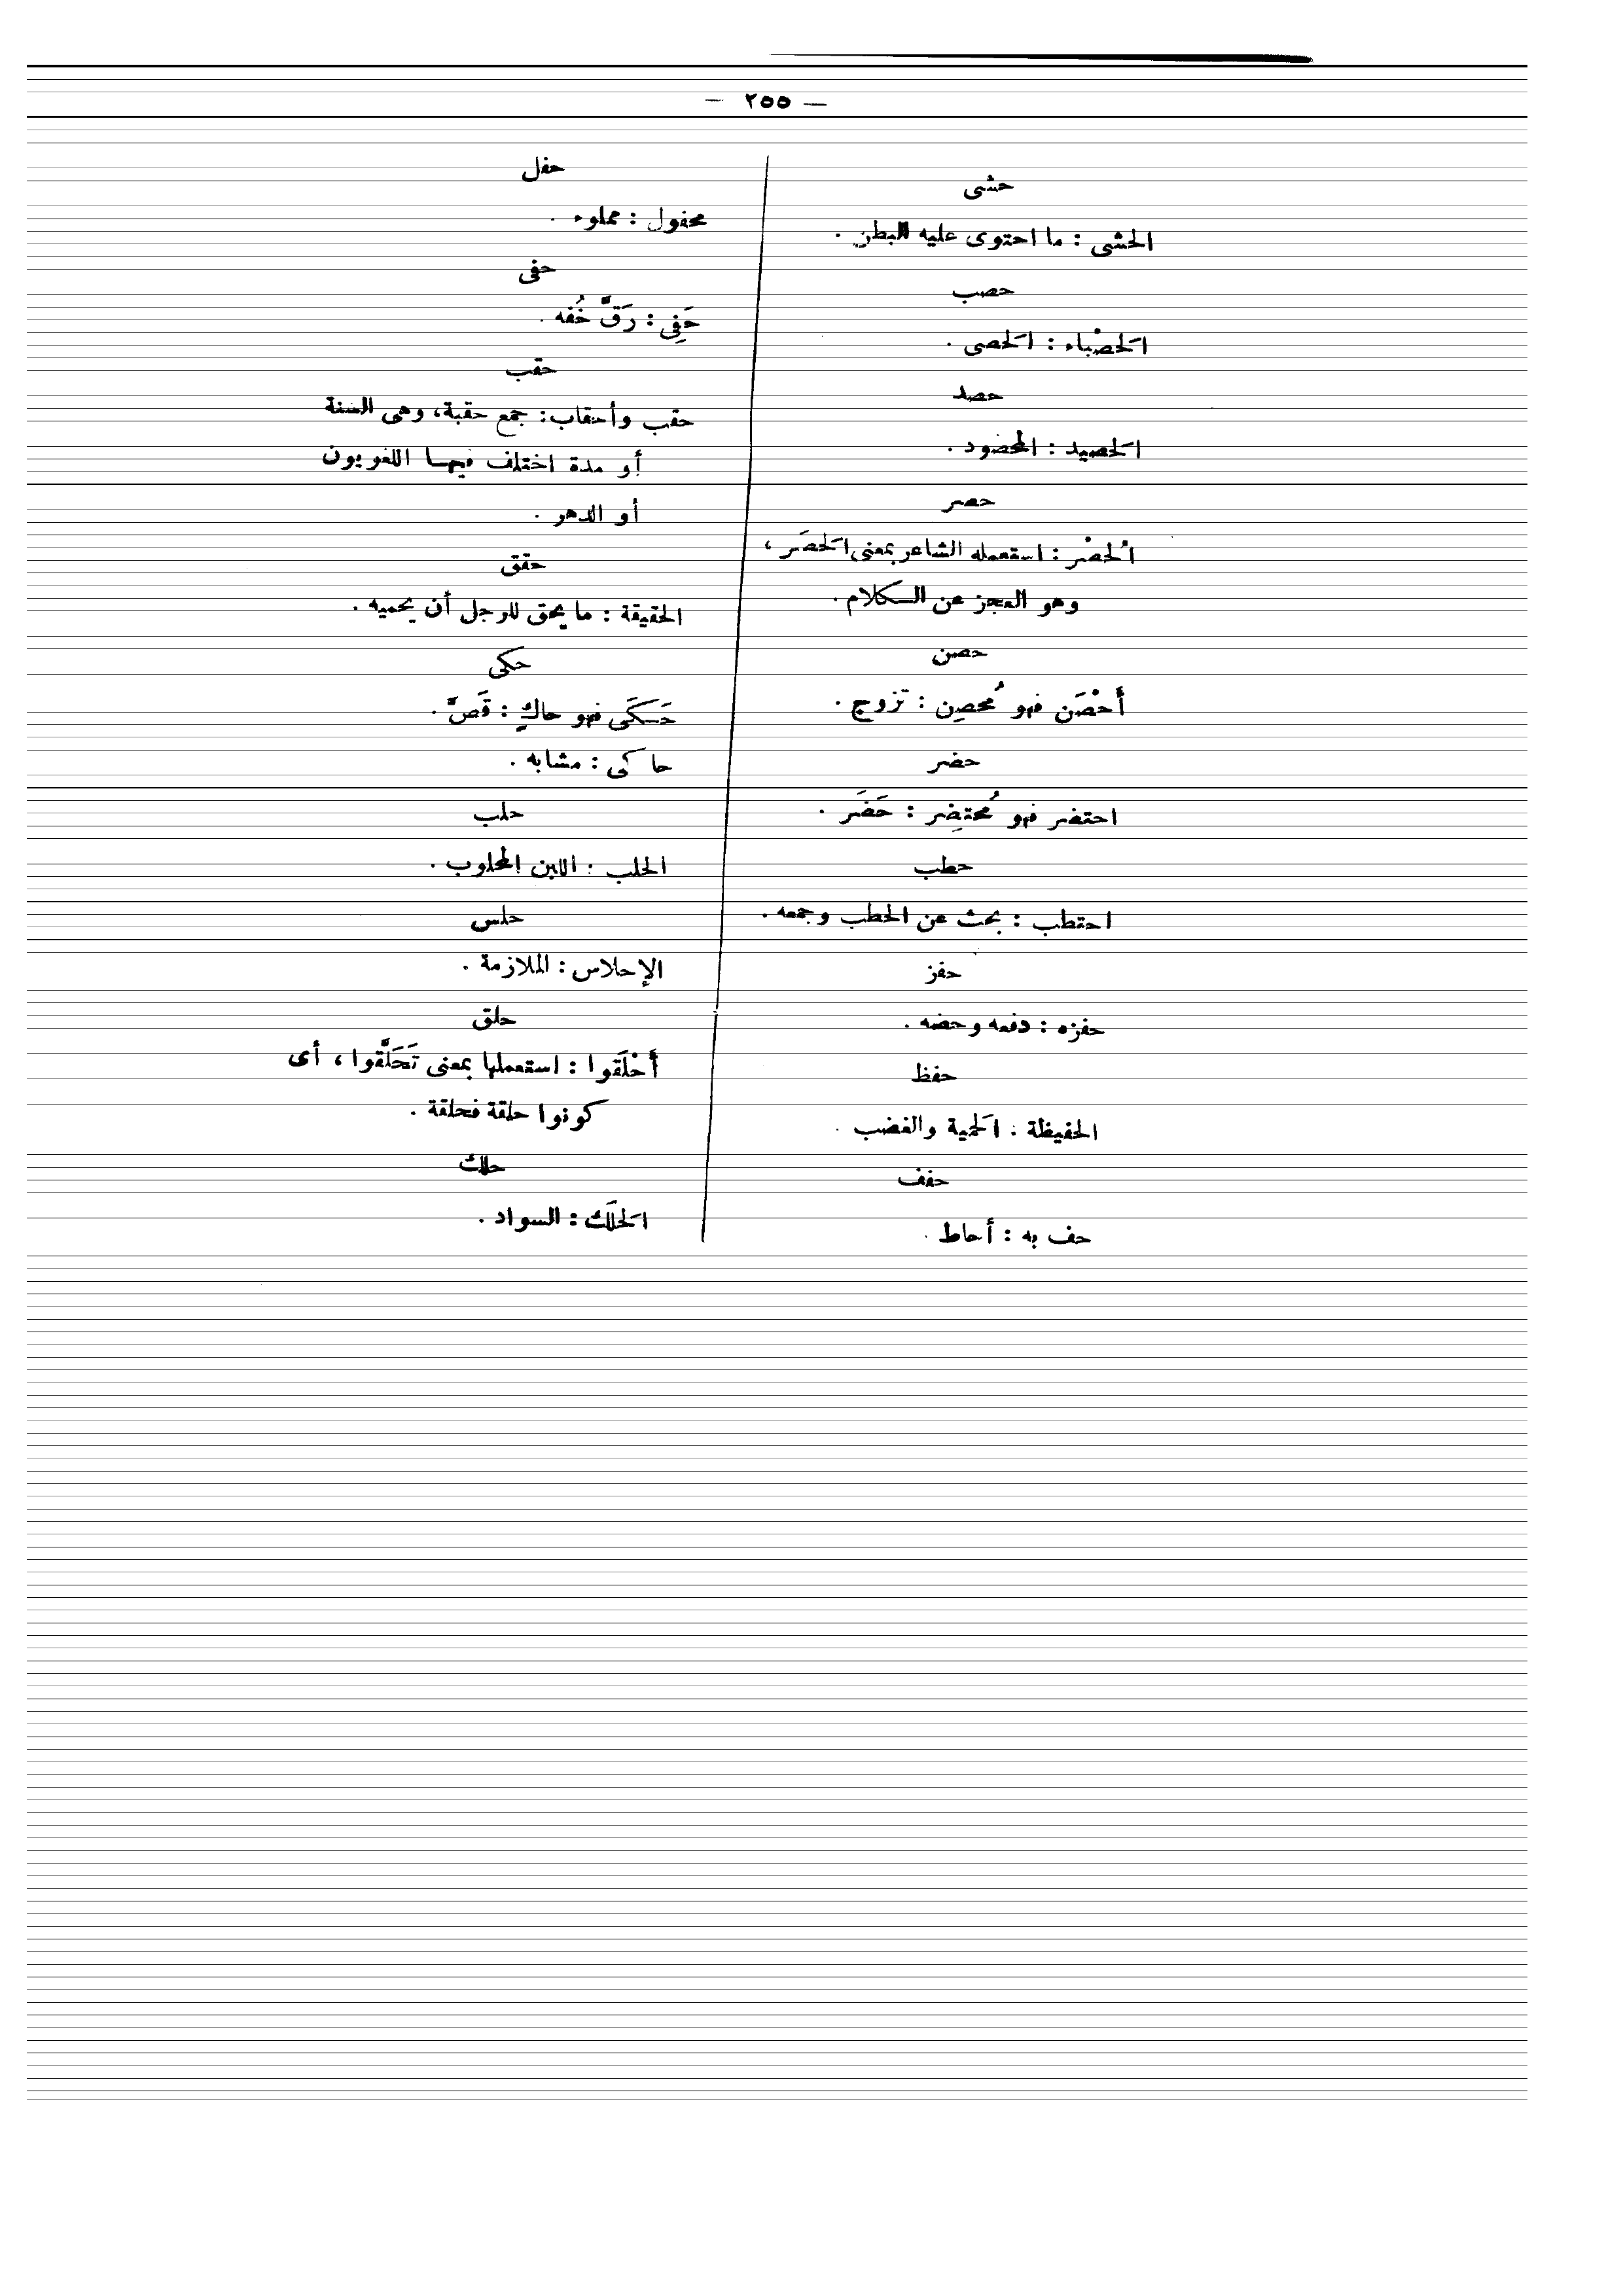 — ٢٥٥ —
حشى
الحشى : ما احتوى عليه البطن .
حصب
الَحصْباء : الَحصى .
حصد
الَحصيد : المحصود .
حصر
الُحصْر : استعمله الشاعر بمعنى الَحصَر ،
وهو العجز عن الكلام .
حصن
أَحْصَن فهو مُحصِن : تزوج .
حضر
احتضر فهو مُحتضِر : حَضَر .
حطب
احتطب : بحث عن الحطب وجمعه .
حفز
حفزه : دفعه وحضه .
حفظ
الحفيظة : الَحمية والغضب .
حفف
حف به : أحاط .
حفل
محفول : مملوء .
حفى
حَفِى : رَقَّ خُفه .
حقب
حقب وأحقاب : جمع حقبة ، وهى السنة
أو مدة اختلف فيها اللغويون
أو الدهر .
حقق
الحقيقة : ما يحق للرجل أن يحميه .
حكى
حَكَى فهو حاكٍ : قَصَّ .
حاكى : مشابه .
حلب
الحلب : اللبن المحلوب .
حلس
الإحلاس : الملازمة .
حلق
أَحْلَقوا : استعملها بمعنى تَحَلَّقوا ، أى
كونوا حلقة فحلقة .
حلك
الَحلَك : السواد .